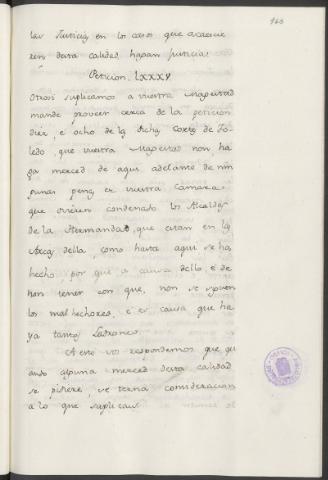 las Justicias en los casos que acaecie
ren desta calidad, hagan justicia.
Peticion. lxxxv
Otrosi suplicamos a vuestra Magestad
mande proveer cerca de la peticion
diez, e ocho de las dichas Cortes de To-
ledo, que vuestra Magestad non ha-
ga merced de aqui adelante de nin
gunas penas en vuestra Camara
que ovieren condenado los Alcaldes
de la Hermandad, que estan en las
Arcas della, como hasta aqui se ha
hecho, por que a causa dello e de
non tener con que, non se siguen
los malhechores, e es causa que ha
ya tantos Ladrones.
A esto vos respondemos que qu
ando alguna merced desta calidad
se pidiere, se terna consideracion
a lo que suplicais